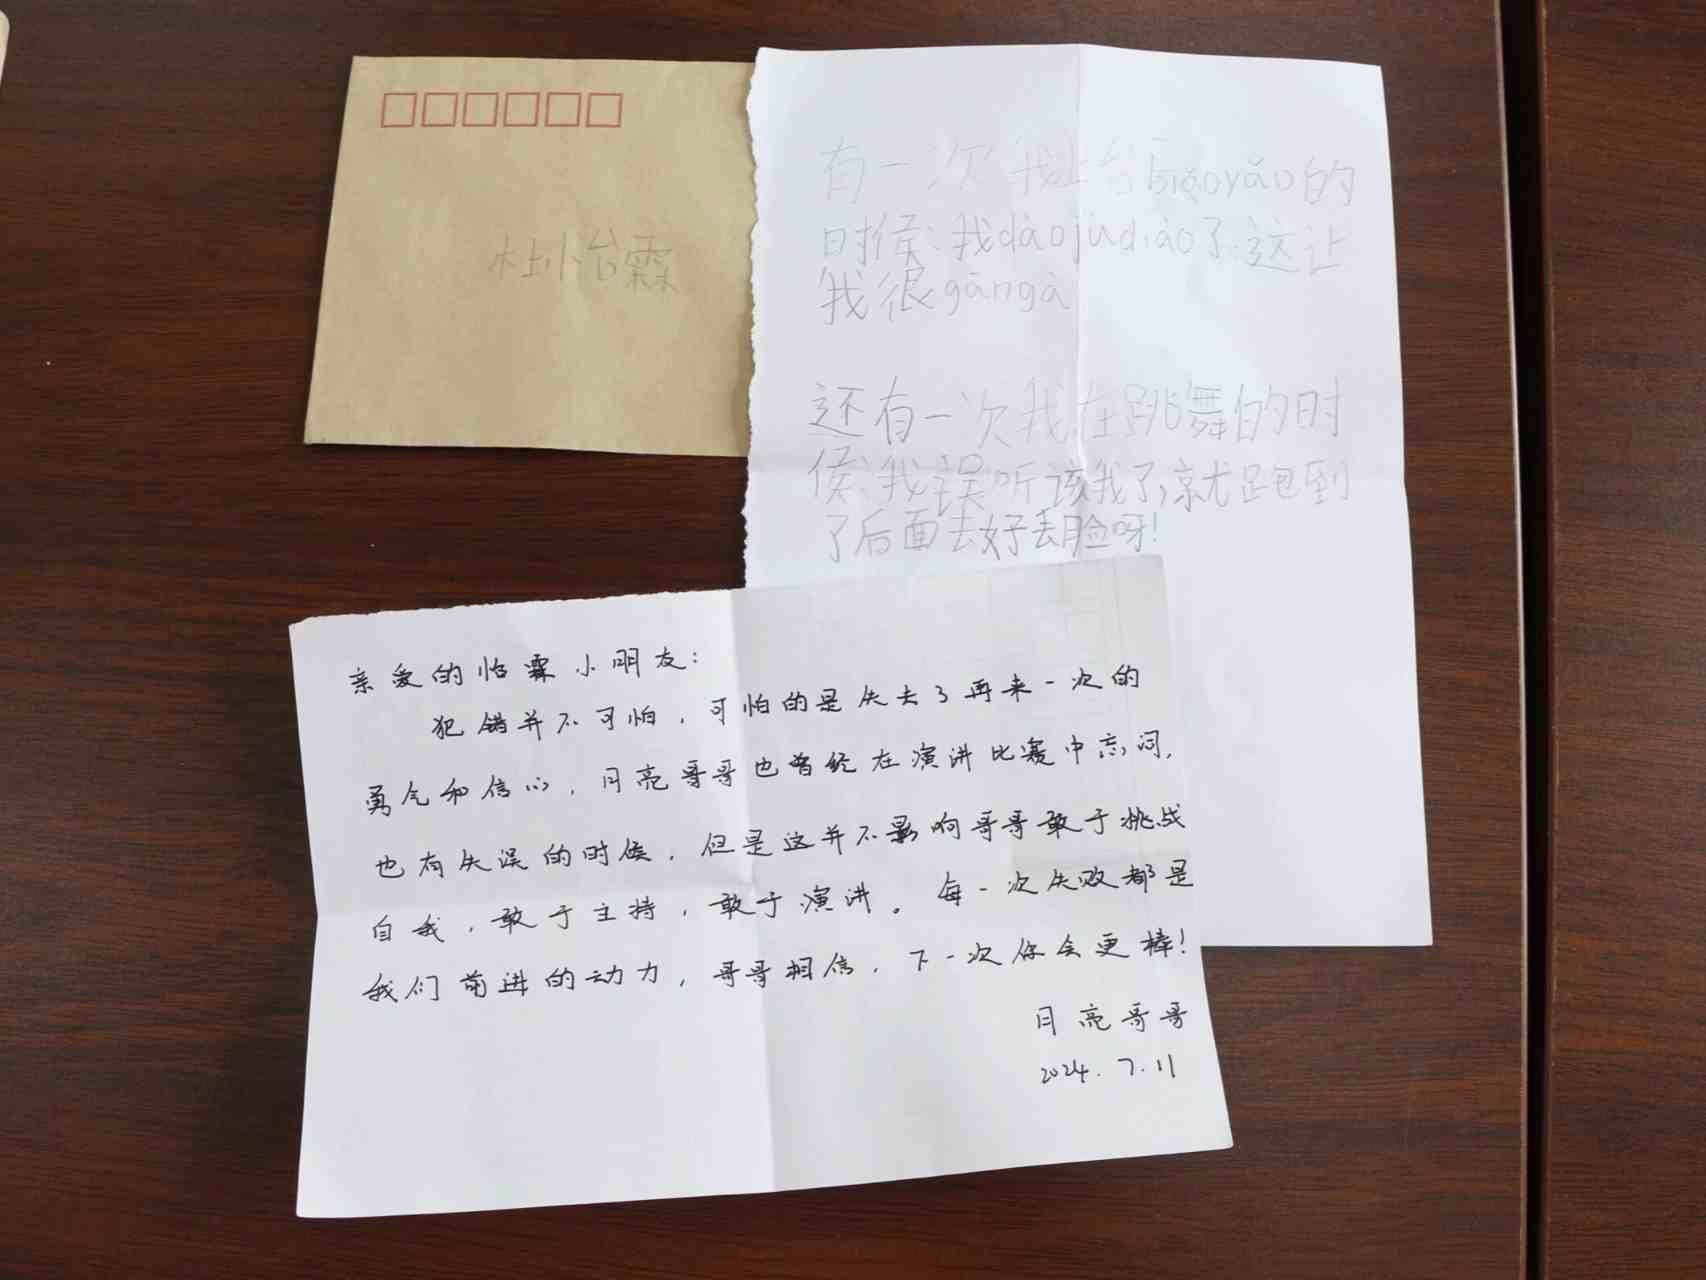 杜怡霖
有一次我上台biǎoyǎn的
时候,我dàojùdiào了.这让
我很gāngà
还有一次我在跳舞的时
侯,我误听该我了,就跑到
了后面去好丢脸呀!
亲爱的怡霖小朋友:
犯错并不可怕,可怕的是失去了再来一次的
勇气和信心,月亮哥哥也曾经在演讲比赛中忘词,
也有失误的时候,但是这并不影响哥哥敢于挑战
自我,敢于主持,敢于演讲。每一次失败都是
我们前进的动力,哥哥相信,下一次你会更棒!
月亮哥哥
2024.7.11